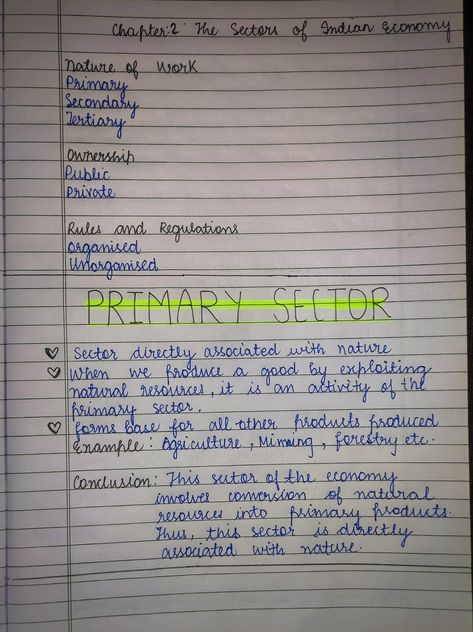 Chapter:2: The Sectors of Indian Economy
Nature of Work
Primary
Secondary
Tertiary
Ownership
Public
Private
Rules and Regulations
Organised
Unorganised
PRIMARY SECTOR
Sector directly associated with nature
When we produce a good by exploiting
natural resources, it is an activity of the
primary sector.
forms base for all other products produced
Example: Agriculture, Mining, forestry etc.
Conclusion: This sector of the economy
involves conversion of natural
resources into primary products.
Thus, this sector is directly
associated with nature.